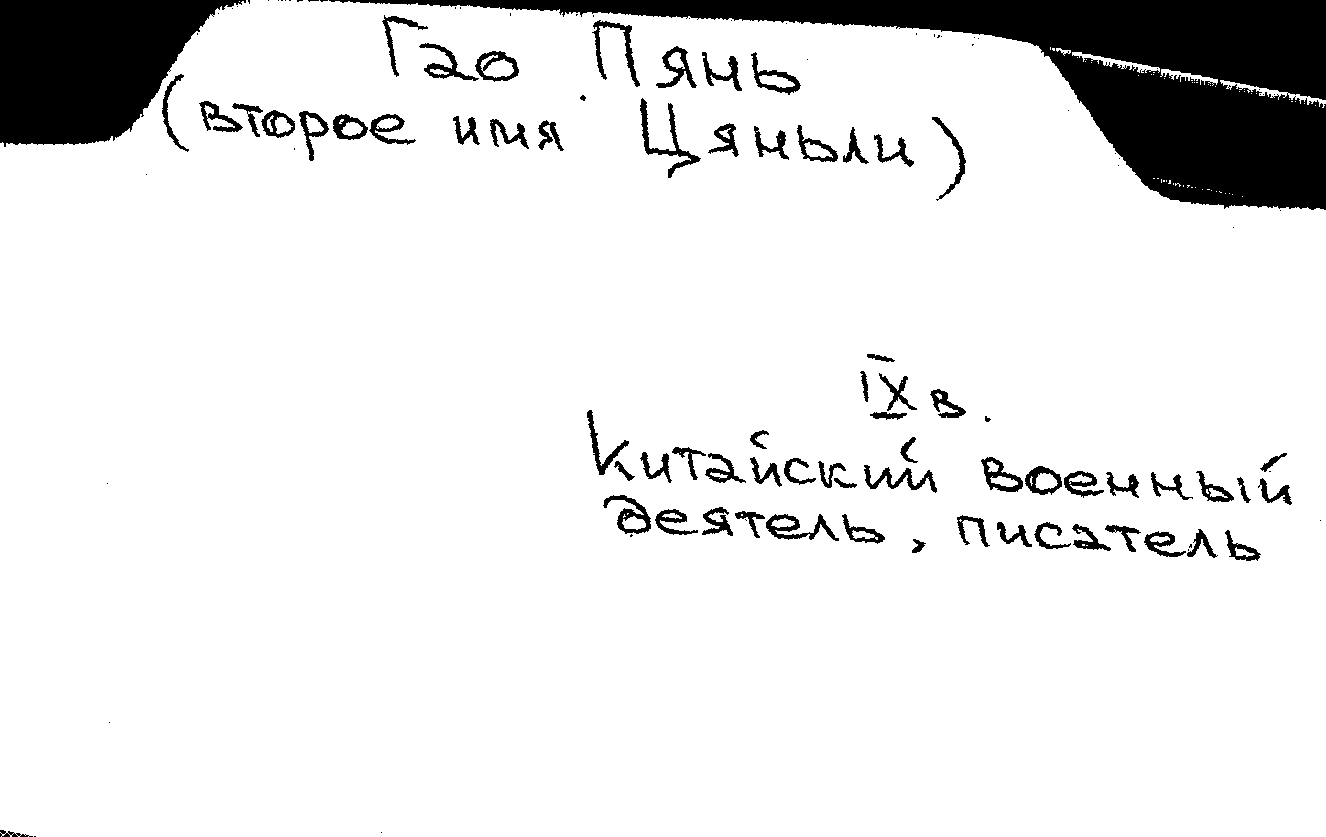 Гао Пянь
(второе имя Цяньли)
IX в.
Китайский военный
деятель, писатель